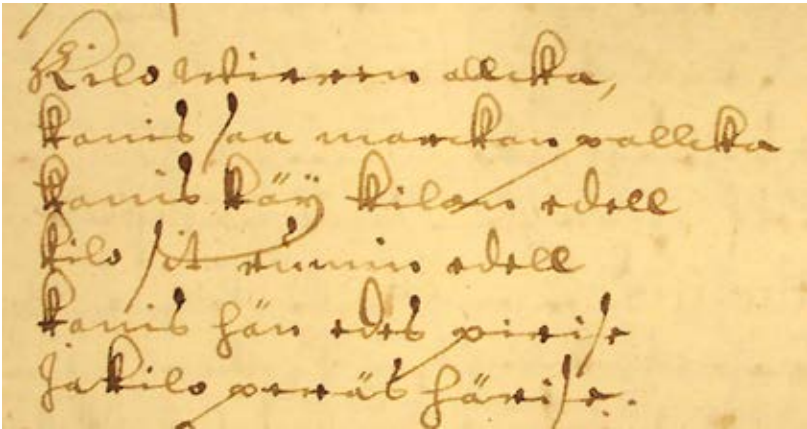 Kilo Wieren allcka,
kanis saa marckan pallcka
kanis käÿ kilan edell
kilo sit ruumin edell
kanis hän edes pirise
Ja kilo peräs härise.